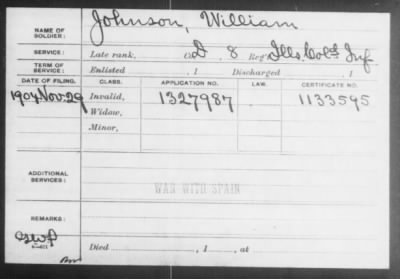 NAME OF SOLDIER: Johnson, William
SERVICE: Late rank, Co. D, 8 Reg't Ills. Col'd Inf.
TERM OF SERVICE: Enlisted , 1 Discharged , 1
DATE OF FILING. CLASS. APPLICATION NO. LAW. CERTIFICATE NO.
1904 Nov. 29 Invalid, 1327987 1133595
Widow,
Minor,
ADDITIONAL SERVICES:
WAR WITH SPAIN
REMARKS:
Died , 1 , at